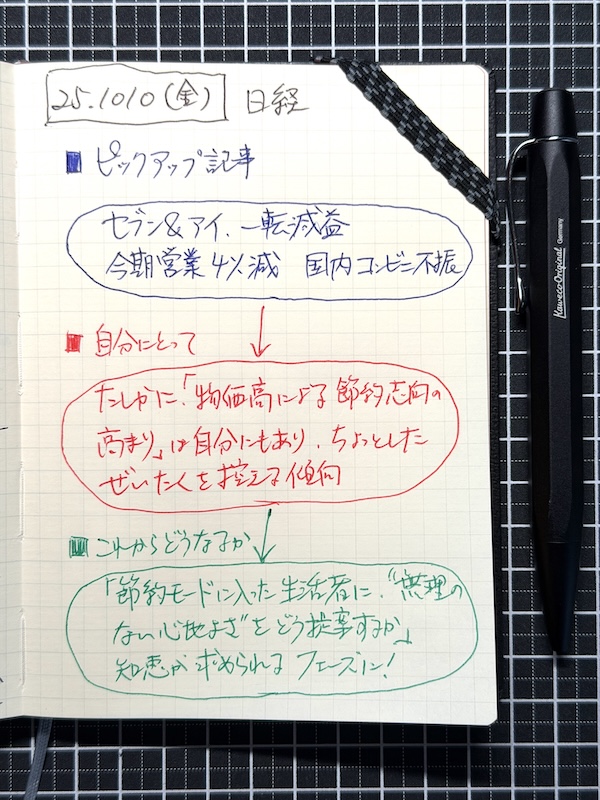 25.1010(金) 日経
■ ピックアップ記事
セブン&アイ、一転減益
今期営業4%減 国内コンビニ不振
■ 自分にとって
たしかに、「物価高による節約志向の
高まり」は自分にもあり、ちょっとした
ぜいたくを控える傾向
■ これからどうなるか
「節約モードに入った生活者に、“無理の
ない心地よさ”をどう提案するか」
知恵が求められるフェーズに!
Kaweco Original
Germany